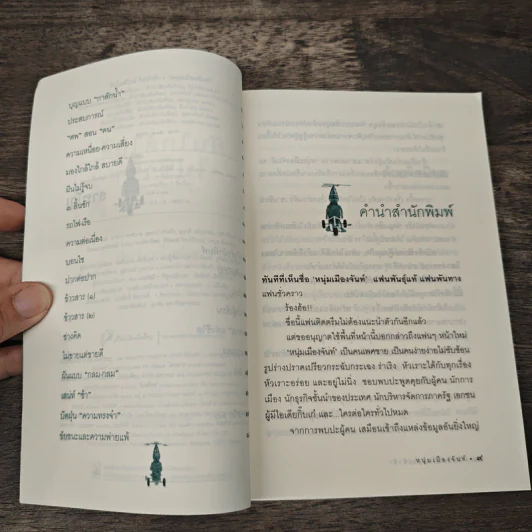 บุญแบบ "กาตักน้ำ"
ประสบการณ์
"ศพ" สอน "คน"
ความเหนื่อย-ความเสี่ยง
มองใกล้ใกล้ สบายดี
มันไม่รู้จบ
๓ สิ้นชัก
รถไฟ-เรือ
ความต่อเนื่อง
บอนไซ
ปากต่อปาก
ข้าวสาร (๑)
ข้าวสาร (๒)
ช่างคิด
ไม่ขายแต่ขายดี
ฝันแบบ "กลม-กลม"
เสน่ห์ "ช้า"
บัดฝุ่น "ความทรงจำ"
ชัยชนะและความพ่ายแพ้
คำนำสำนักพิมพ์
ทันทีที่เห็นชื่อ 'หนุ่มเมืองจันท์' แฟนพันธุ์แท้ แฟนพันทาง
แฟนชั่วคราว
ร้องอ๋อ!!
ชื่อนี้แฟนติดตรึมไม่ต้องแนะนำตัวกันอีกแล้ว
แต่ขออนุญาตใช้พื้นที่หน้านี้บอกกล่าวถึงแฟนๆ หน้าใหม่
'หนุ่มเมืองจันท์' เป็นคนเพศชาย เป็นคนง่ายง่ายไม่ซับซ้อน
รูปร่างปราดเปรียวกระฉับกระเฉง ร่าเริง หัวเราะได้กับทุกเรื่อง
หัวเราะอร่อย และอยู่ไม่นิ่ง ชอบพบปะพูดคุยกับผู้คน นักการ
เมือง นักธุรกิจชั้นนำของประเทศ นักบริหารจัดการภาครัฐ เอกชน
ผู้มีไอเดียกิ๊บเก๋ และ...ใครต่อใครทั่วไปหมด
จากการพบปะผู้คน เสมือนเข้าถึงแหล่งข้อมูลอันยิ่งใหญ่
หนุ่มเมืองจันท์ • ๙